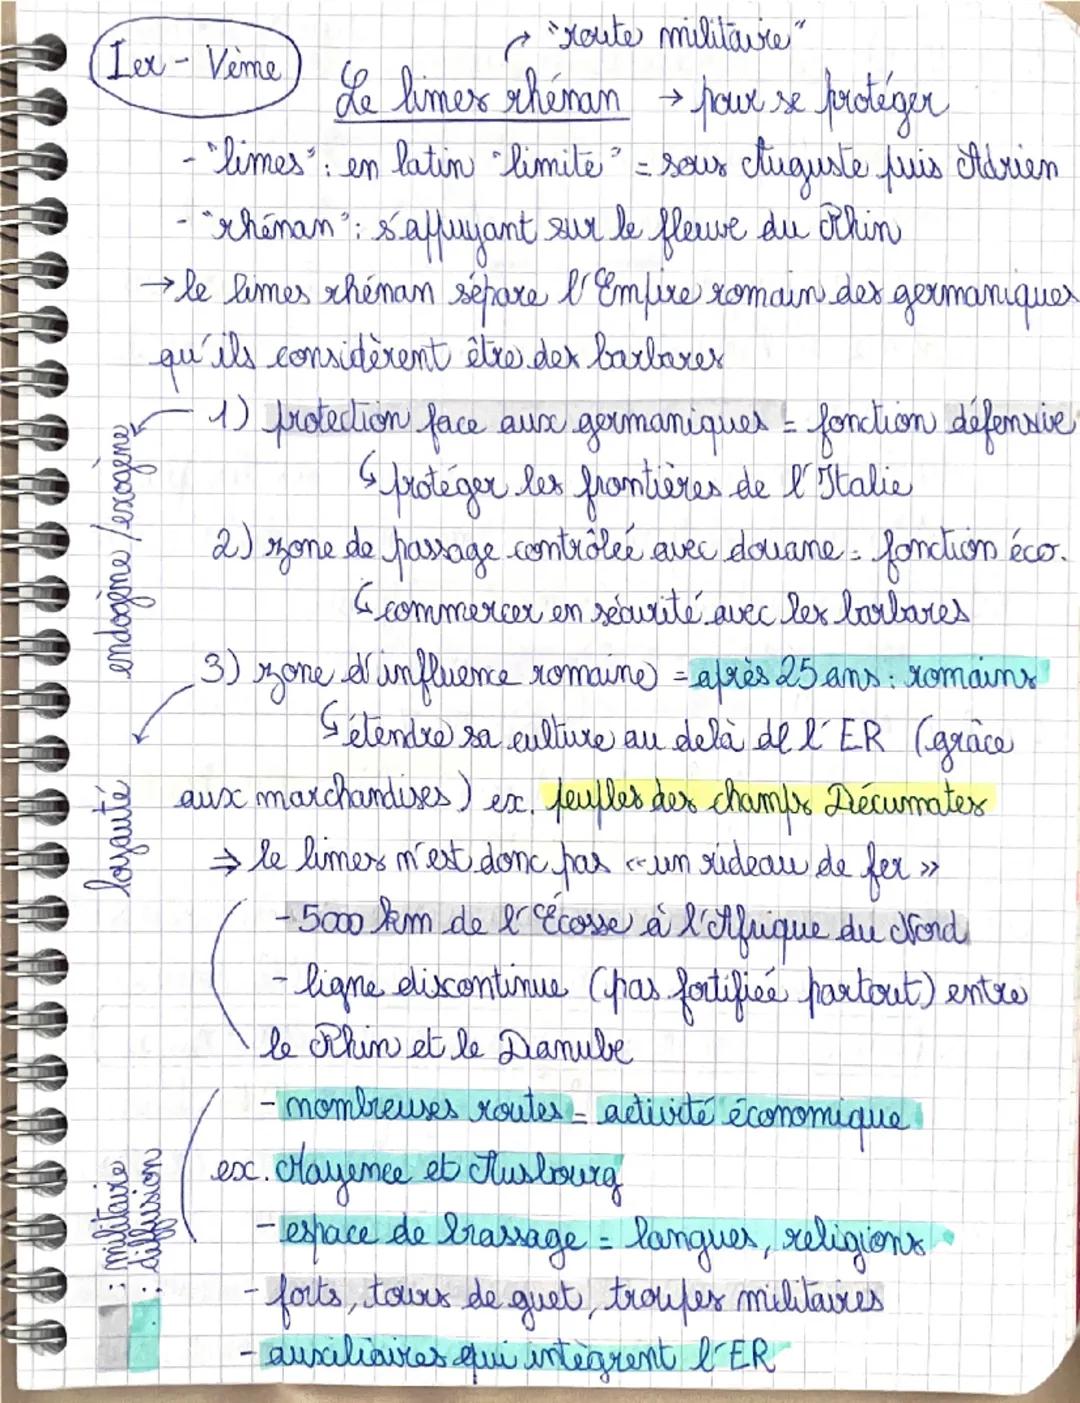 Ier - Vème
→ "route militaire"
Le limes rhénan → pour se protéger
- "limes": en latin "limite" = sous Auguste puis Adrien
- "rhénan": s'appuyant sur le fleuve du Rhin
→ le limes rhénan sépare l'Empire romain des germaniques
qu'ils considèrent être des barbares
1) protection face aux germaniques = fonction défensive
↳ protéger les frontières de l'Italie
2) zone de passage contrôleé avec douane = fonction éco.
↳ commercer en sécurité avec les barbares
3) zone d'influence romaine = après 25 ans : romains
↳ étendre sa culture au delà de l'ER (grâce
aux marchandises) ex. peuples des champs Décumates
⇒ le limes n'est donc pas « un rideau de fer »
- 5000 km de l'Écosse à l'Afrique du Nord
- ligne discontinue (pas fortifiée partout) entre
le Rhin et le Danube
- nombreuses routes = activité économique
ex. Mayence et Ausbourg
- espace de brassage = langues, religions
- forts, tours de guet, troupes militaires
- auxiliaires qui intègrent l'ER
endogène / exogène
loyauté
: militaire
: diffusion